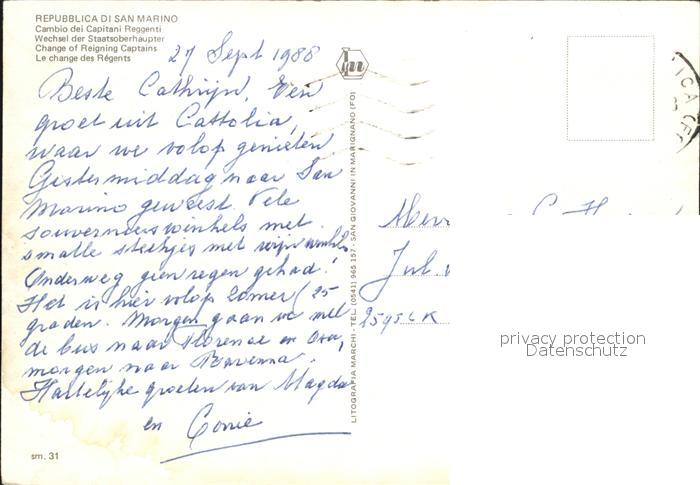 REPUBBLICA DI SAN MARINO
Cambio dei Capitani Reggenti
Wechsel der Staatsoberhaupter
Change of Reigning Captains
Le change des Régents
27 Sept 1988
Beste Cathrijn, Een
groet uit Cattolia,
waar we volop genieten
Gistermiddag naar San
Marino geweest. Vele
souvernierswinkels met
smalle steegjes met wijnwinkels
Onderweg geen regen gehad!
Het is hier volop zomer (25
graden. Morgen gaan we met
de bus naar Florence en
morgen naar Ravenna.
Hartelijke groeten van Magda
en Corrie
LITOGRAFIA MARCHI - TEL. (0541) 965 157 - SAN GIOVANNI IN MARIGNANO (FO)
Mevr
C. H.
Jul.
2595LK
privacy protection
Datenschutz
sm. 31